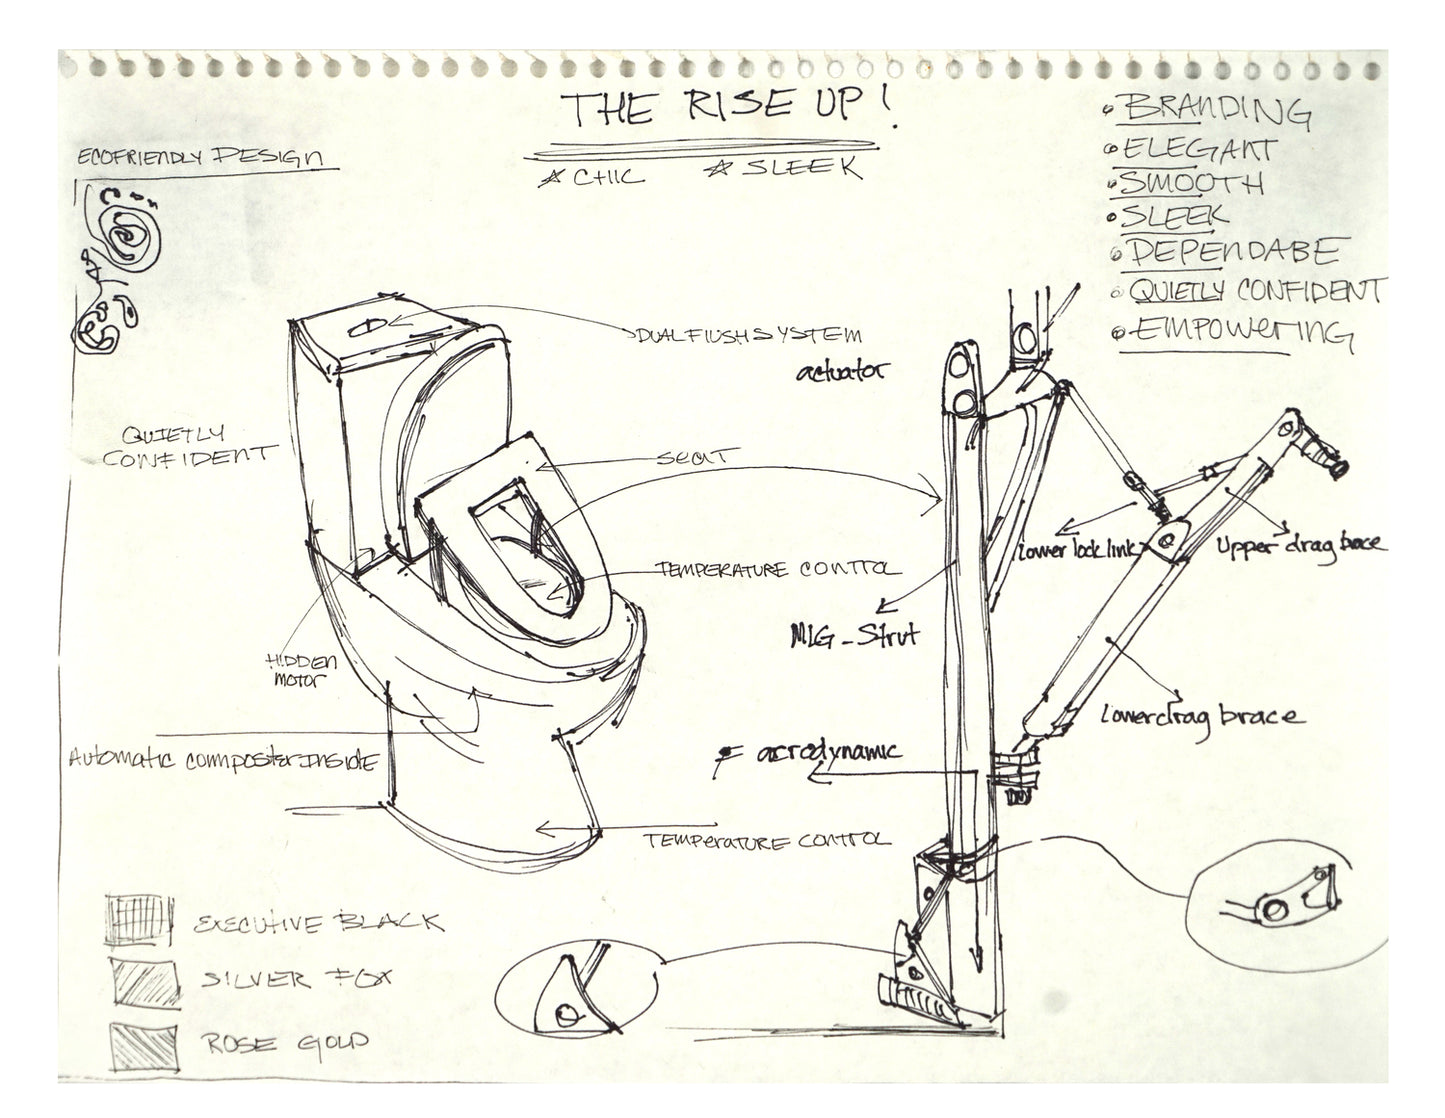 THE RISE UP!
☆ CHIC ☆ SLEEK
ECOFRIENDLY DESIGN
• BRANDING
• ELEGANT
• SMOOTH
• SLEEK
• DEPENDABE
• QUIETLY CONFIDENT
• EMPOWERING
DUAL FLUSH SYSTEM
actuator
QUIETLY
CONFIDENT
SEAT
lower lock link
Upper drag brace
TEMPERATURE CONTROL
MLG-Strut
HIDDEN
MOTOR
lower drag brace
Automatic composter Inside
F aerodynamic
TEMPERATURE CONTROL
EXECUTIVE BLACK
SILVER FOX
ROSE GOLD